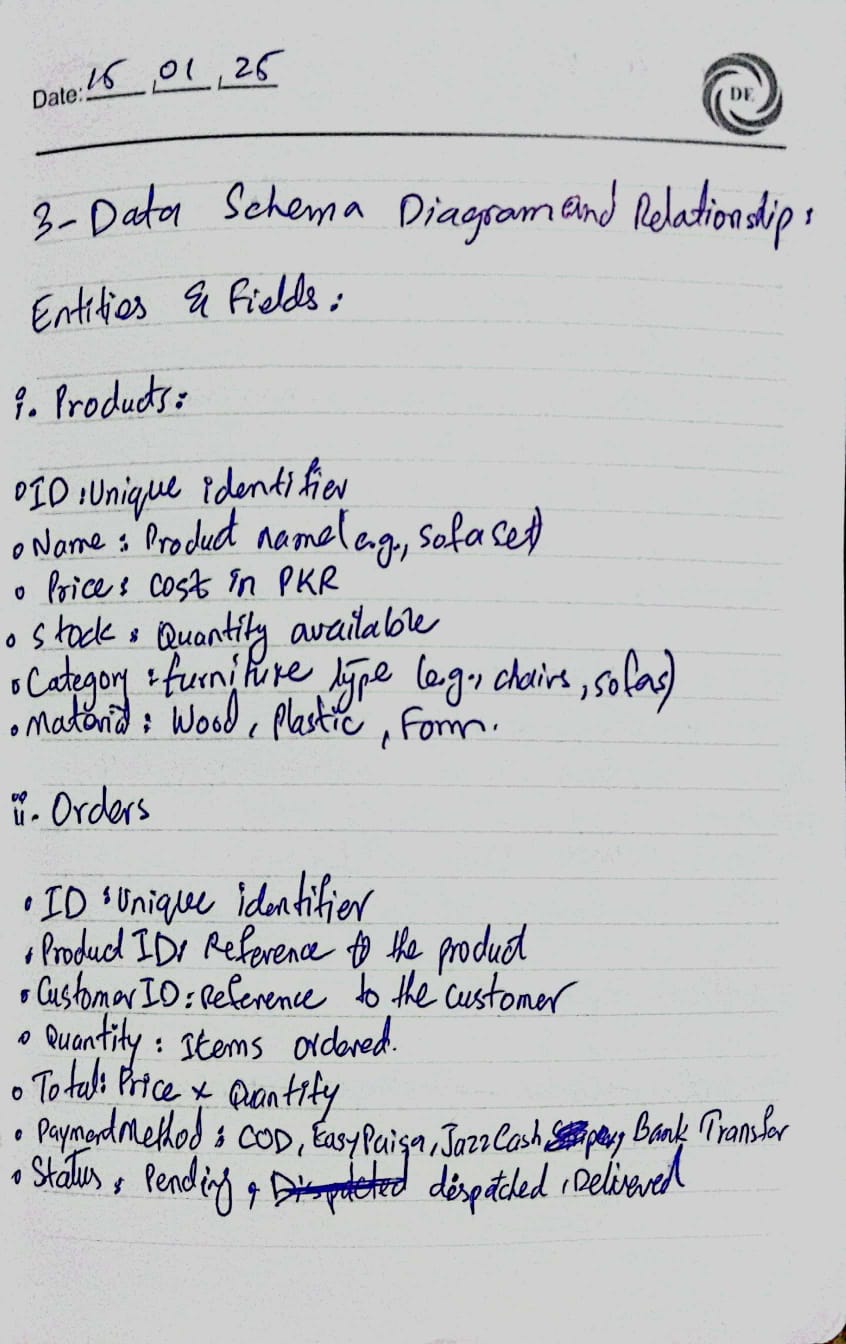 Date: 15, 01, 25
DE
3- Data Schema Diagram and Relationship:
Entities & Fields:
i. Products:
ID: Unique identifier
Name: Product name (e.g., sofa set)
Price: Cost in PKR
Stock: Quantity available
Category: furniture type (e.g., chairs, sofas)
Material: Wood, Plastic, Foam.
ii. Orders
ID: Unique identifier
Product ID: Reference to the product
Customer ID: Reference to the customer
Quantity: Items ordered.
Total: Price x Quantity
Payment Method: COD, EasyPaisa, JazzCash, Bank Transfer
Status: Pending, dispatched, Delivered